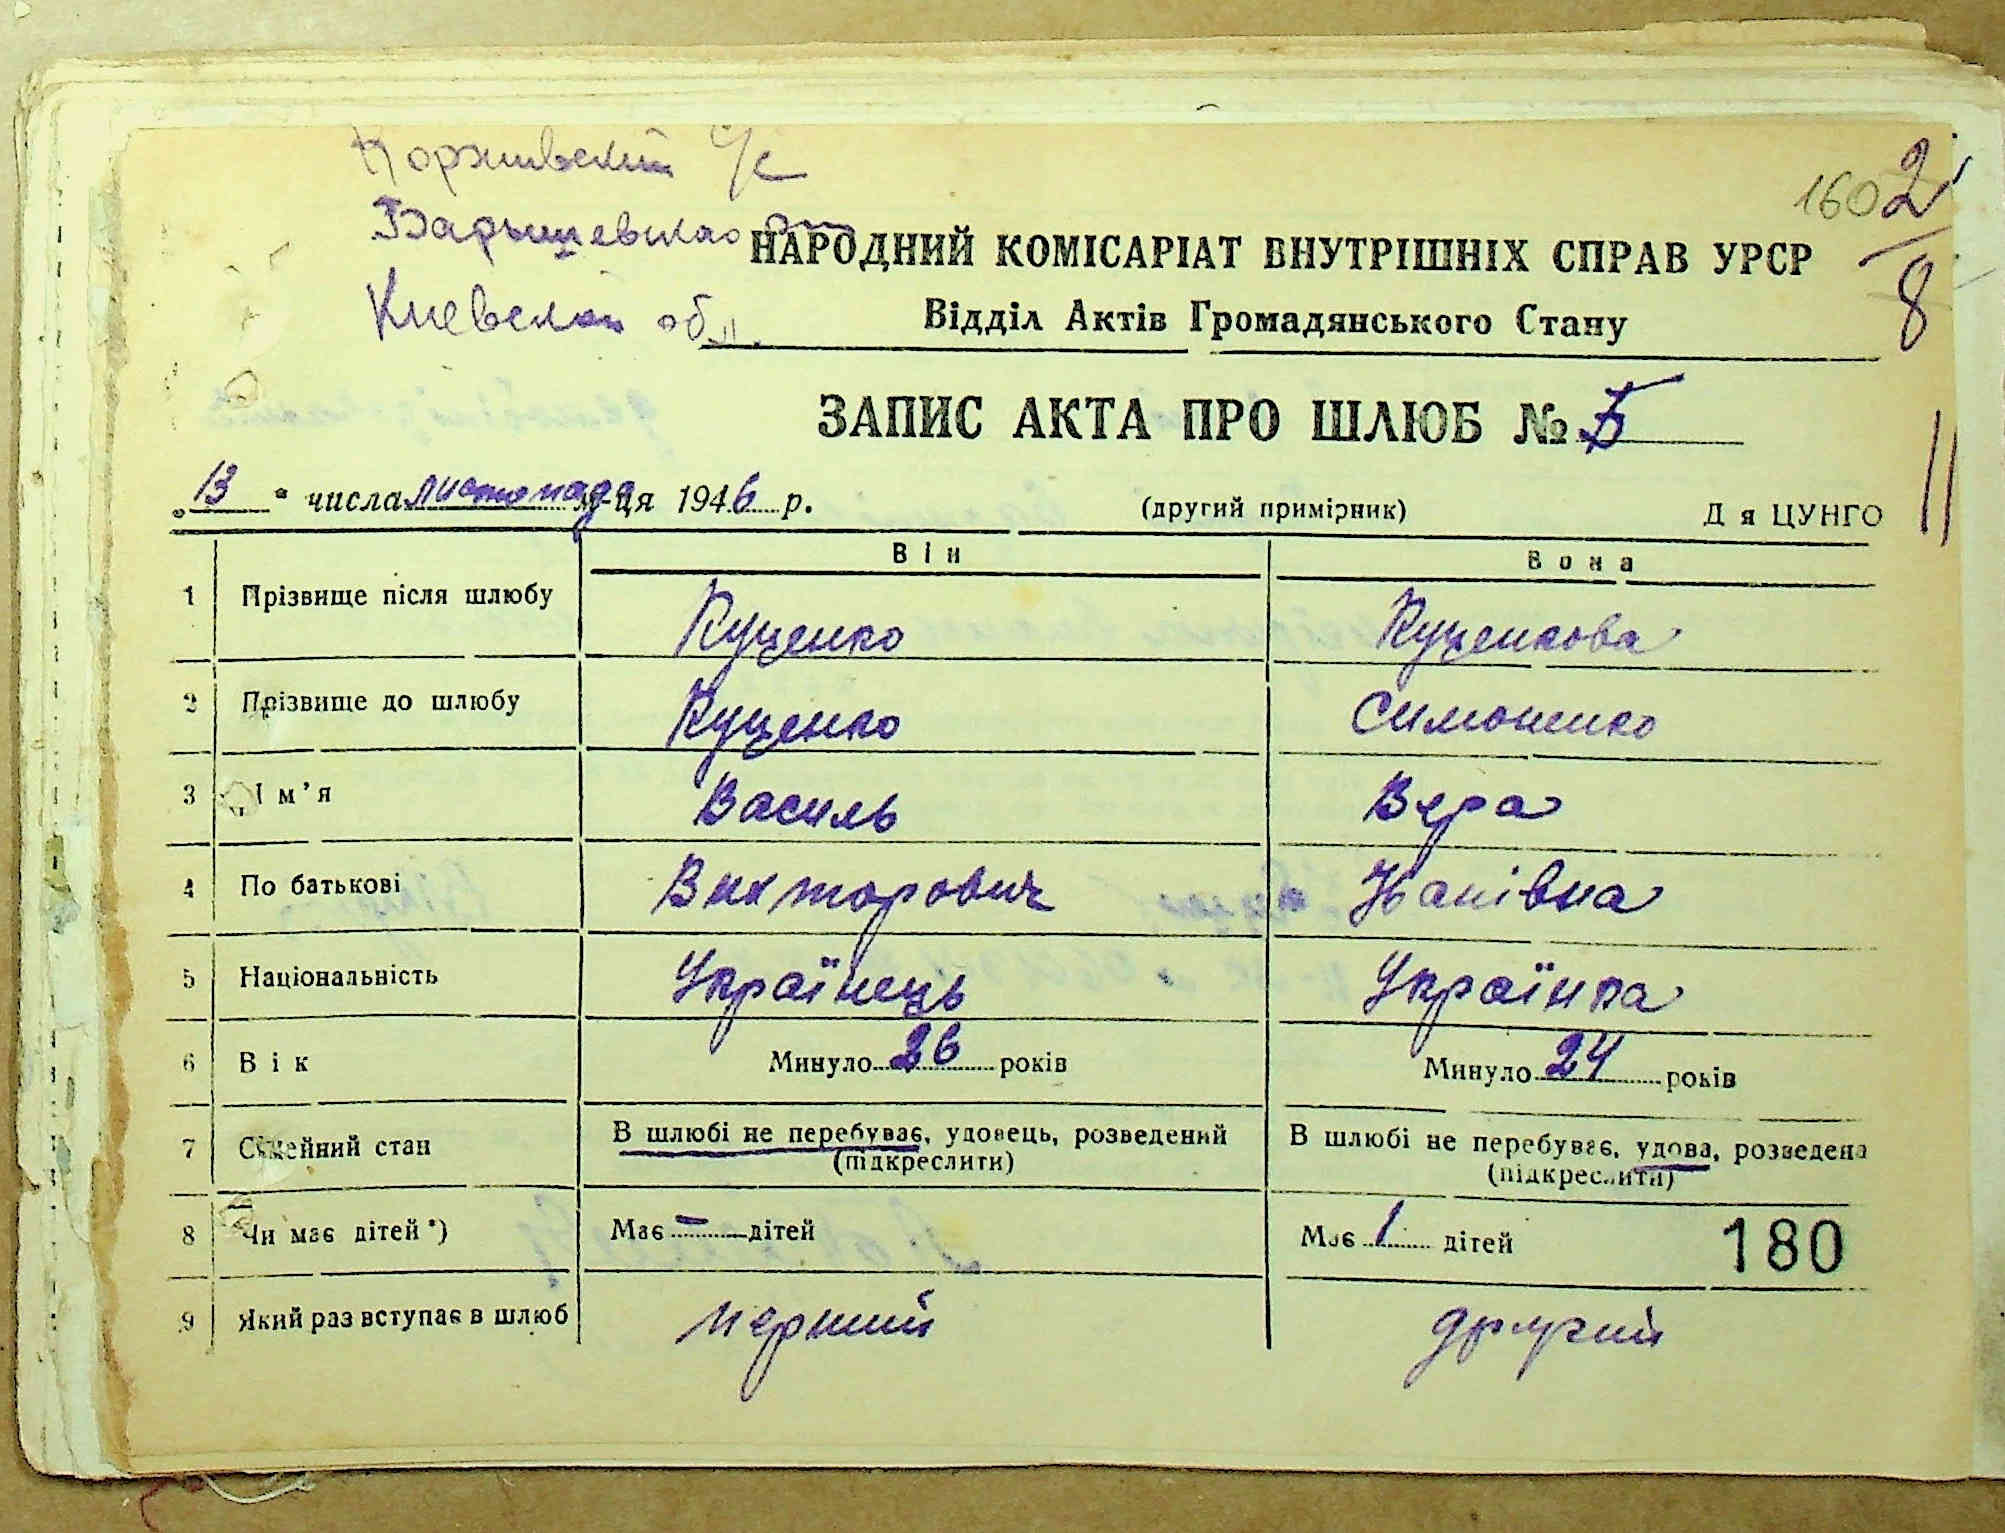 Корживский с/с
1602
Барышевского р-на
8
НАРОДНИЙ КОМІСАРІАТ ВНУТРІШНІХ СПРАВ УРСР
Киевской обл.
Відділ Актів Громадянського Стану
ЗАПИС АКТА ПРО ШЛЮБ № 5
11
„13“ числа листопада м-ця 1946 р.
(другий примірник)
Д я ЦУНГО
Він
Вона
1 Прізвище після шлюбу Куценко Куценкова
2 Прізвище до шлюбу Куценко Симоненко
3 Ім’я Василь Вера
4 По батькові Викторович Іванівна
5 Національність Українець Українка
6 Вік Минуло 26 років Минуло 24 років
7 Сімейний стан В шлюбі не перебуває, удовець, розведений В шлюбі не перебуває, удова, розведена
(підкреслити) (підкреслити)
8 Чи має дітей*) Має – дітей Має 1 дітей
180
9 Який раз вступає в шлюб перший другий